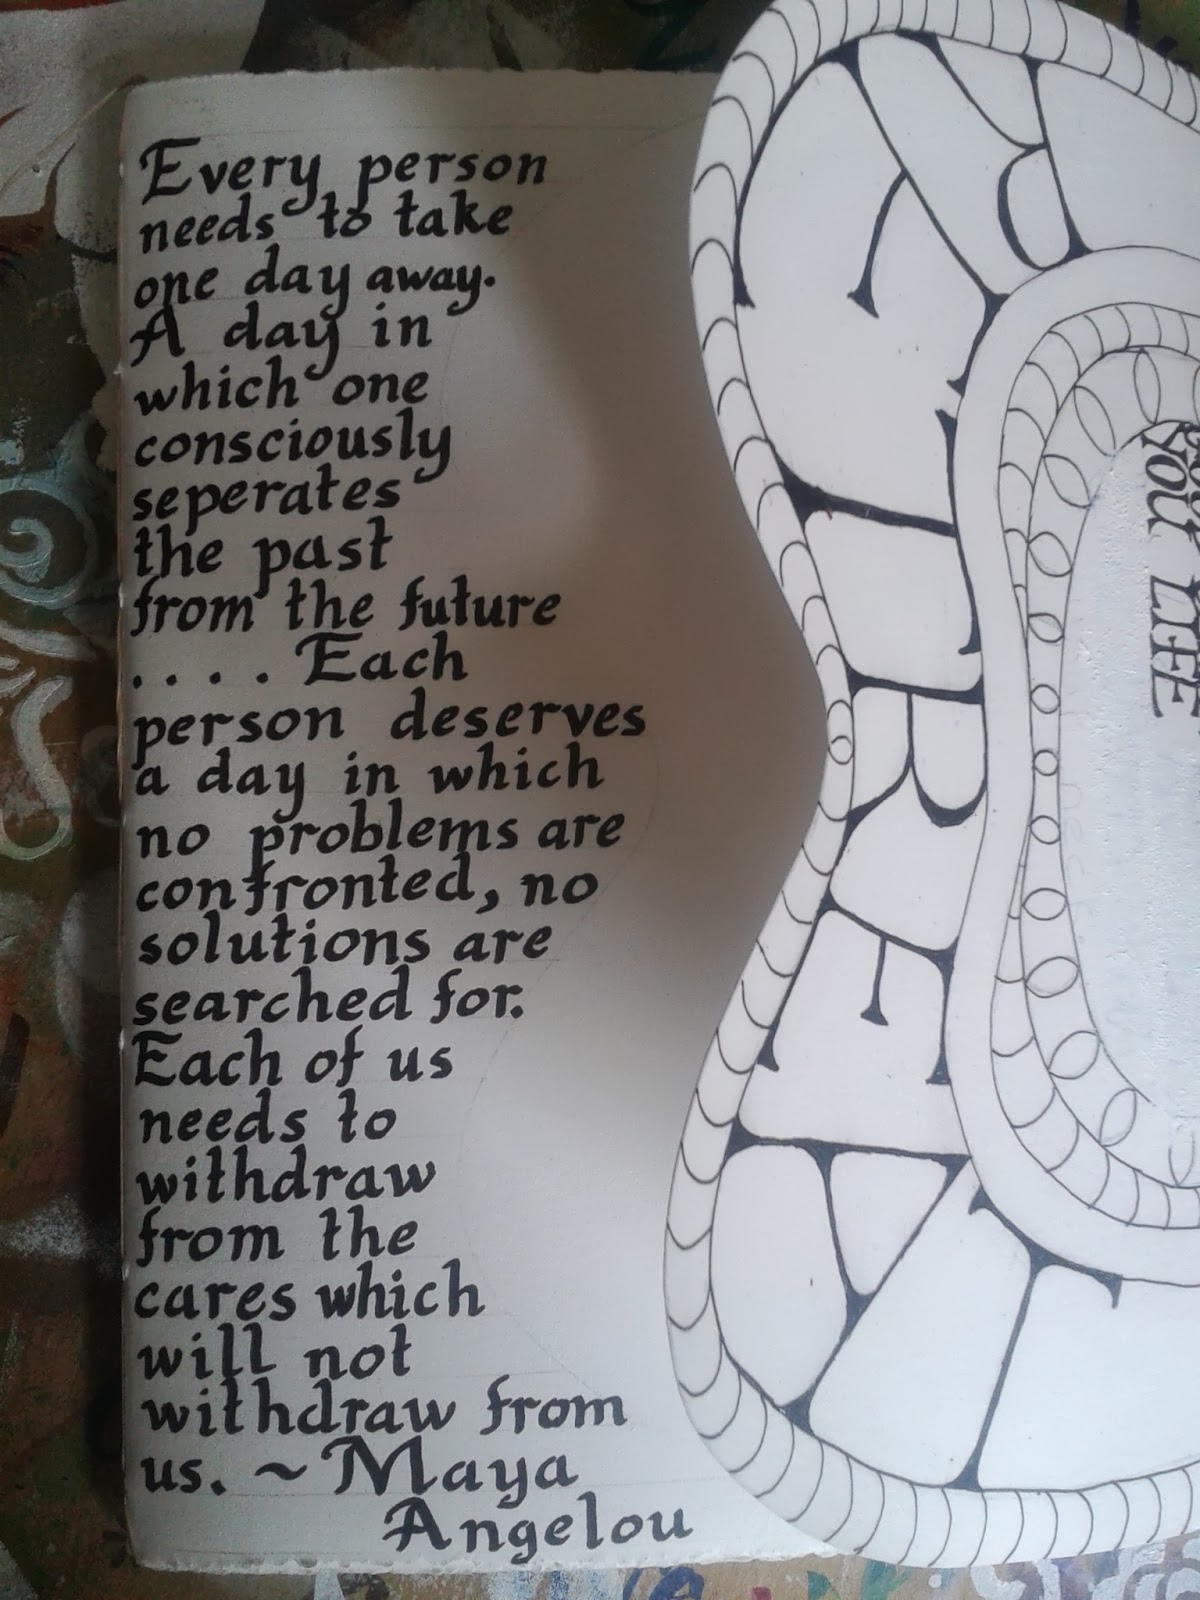 Every person
needs to take
one day away.
A day in
which one
consciously
seperates
the past
from the future
.... Each
person deserves
a day in which
no problems are
confronted, no
solutions are
searched for.
Each of us
needs to
withdraw
from the
cares which
will not
withdraw from
us. ~ Maya
Angelou
YOU LIFE